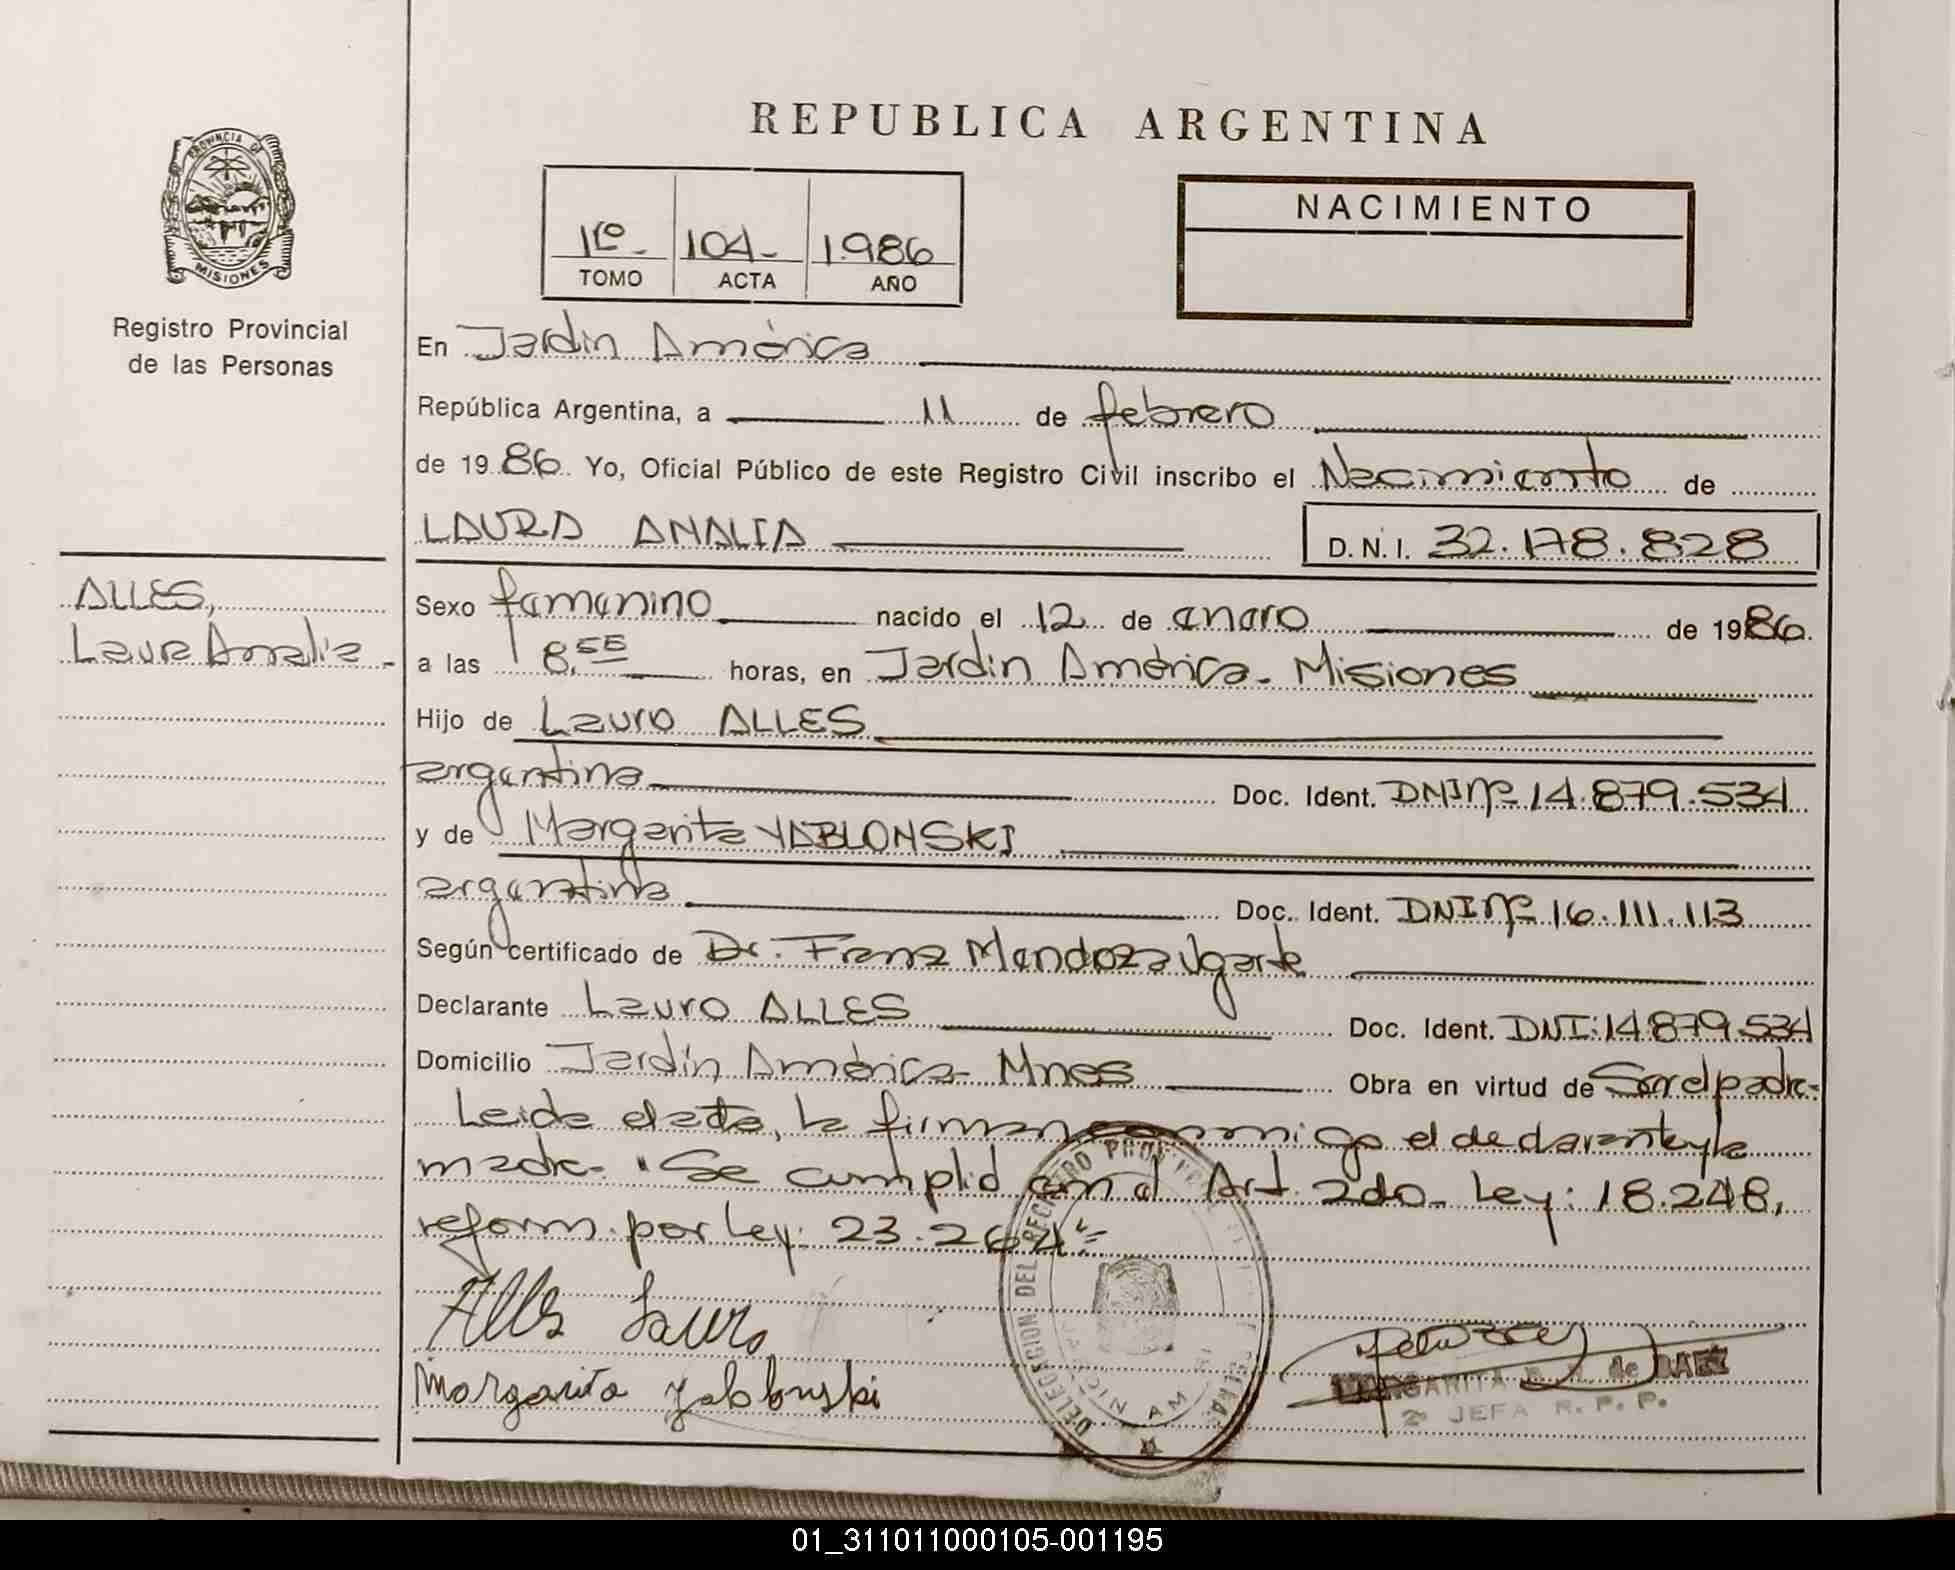 REPUBLICA ARGENTINA
PROVINCIA DE
MISIONES
Registro Provincial
de las Personas
1ro- 104- 1.986
TOMO ACTA AÑO
NACIMIENTO
En Jardín América
República Argentina, a 11 de febrero
de 1986 Yo, Oficial Público de este Registro Civil inscribo el Nacimiento de
LAURA ANALIA D.N.I. 32.178.828
ALLES,
Laura Analia -
Sexo femenino nacido el 12 de enero de 1986.
a las 8,55 horas, en Jardín América- Misiones
Hijo de Lauro ALLES
argentina Doc. Ident. DNI Nº 14.879.534
y de Margarita YABLONSKI
argentina Doc. Ident. DNI Nº 16.111.113
Según certificado de Dr. Franz Mendoza Ugarte
Declarante Lauro ALLES Doc. Ident. DNI: 14.879.534
Domicilio Jardín América- Mnes Obra en virtud de Ser el padre-
Leida el acta, la firman conmigo el declarante y la
madre- "Se cumplió con el Art. 2do- Ley: 18.248,
reform. por Ley: 23.264"=
Alles Lauro
Margarita Yablonski
DELEGACION DEL REGISTRO
JARDIN AM
MARGARITA de BAEZ
2ª JEFA R. P. P.
01_311011000105-001195